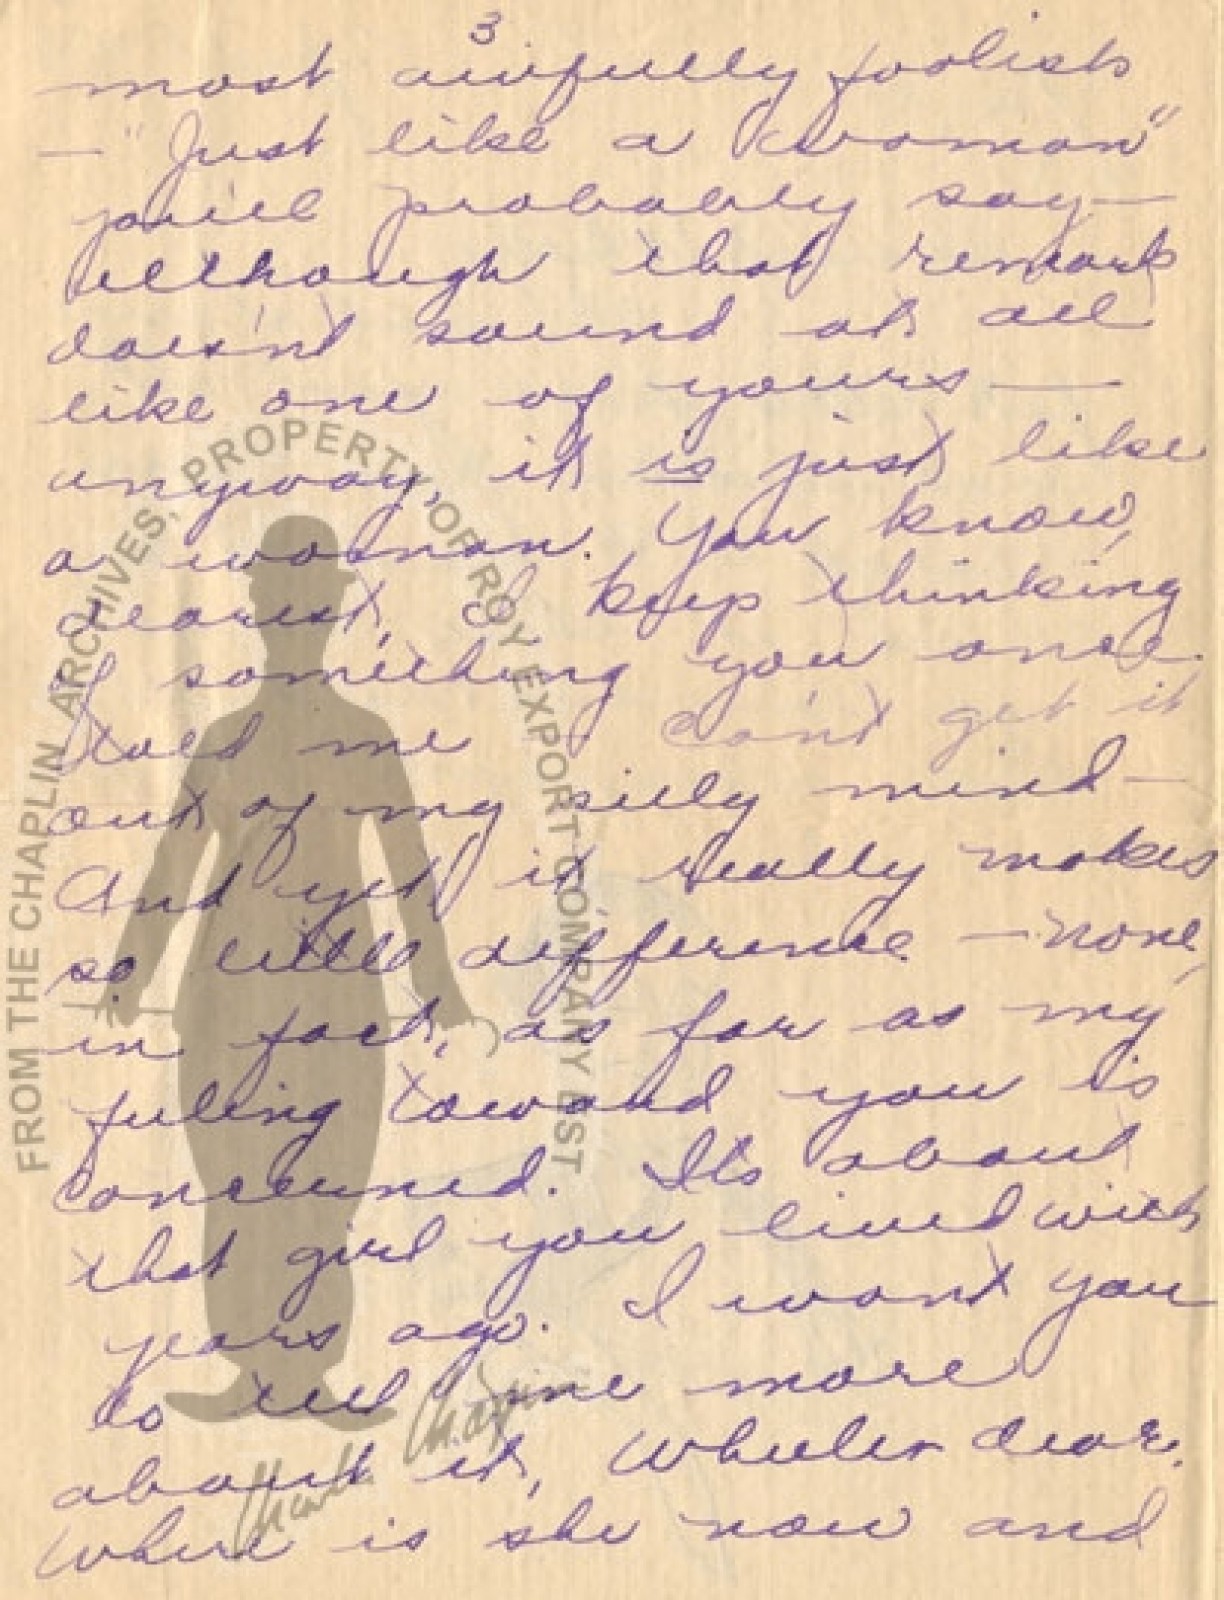 3
most awfully foolish
— "Just like a woman"
you'll probably say —
although that remark
doesn't sound at all
like one of yours —
anyway, it is just like
a woman. You know,
dearest, I keep thinking
of something you once
told me I can't get it
out of my silly mind —
And yet it really makes
so little difference — none,
in fact, as far as my
feeling toward you is
concerned. It's about
that girl you lived with
years ago. I want you
to tell me more
about it, Wheeler dear.
Where is she now and
FROM THE CHAPLIN ARCHIVES, PROPERTY OF ROY EXPORT COMPANY EST
Charlie Chaplin